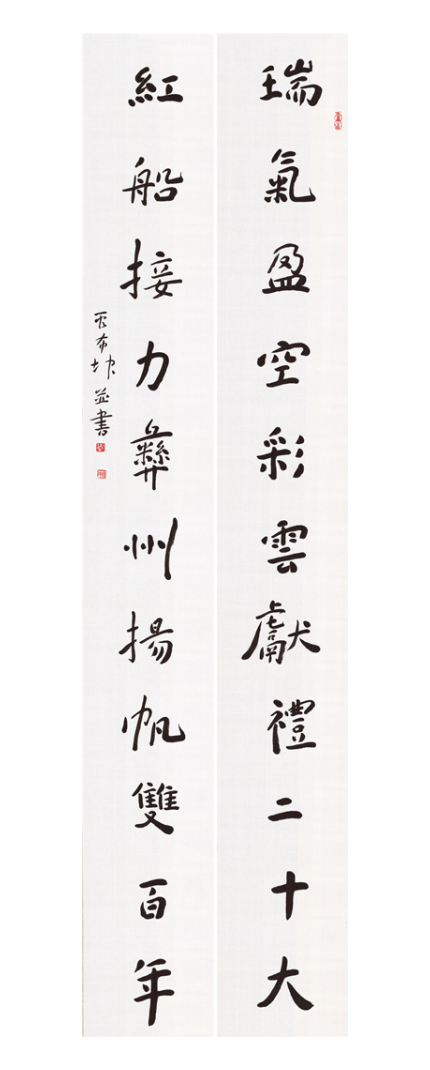 瑞氣盈空彩雲獻禮二十大
紅船接力彞州揚帆雙百年
書